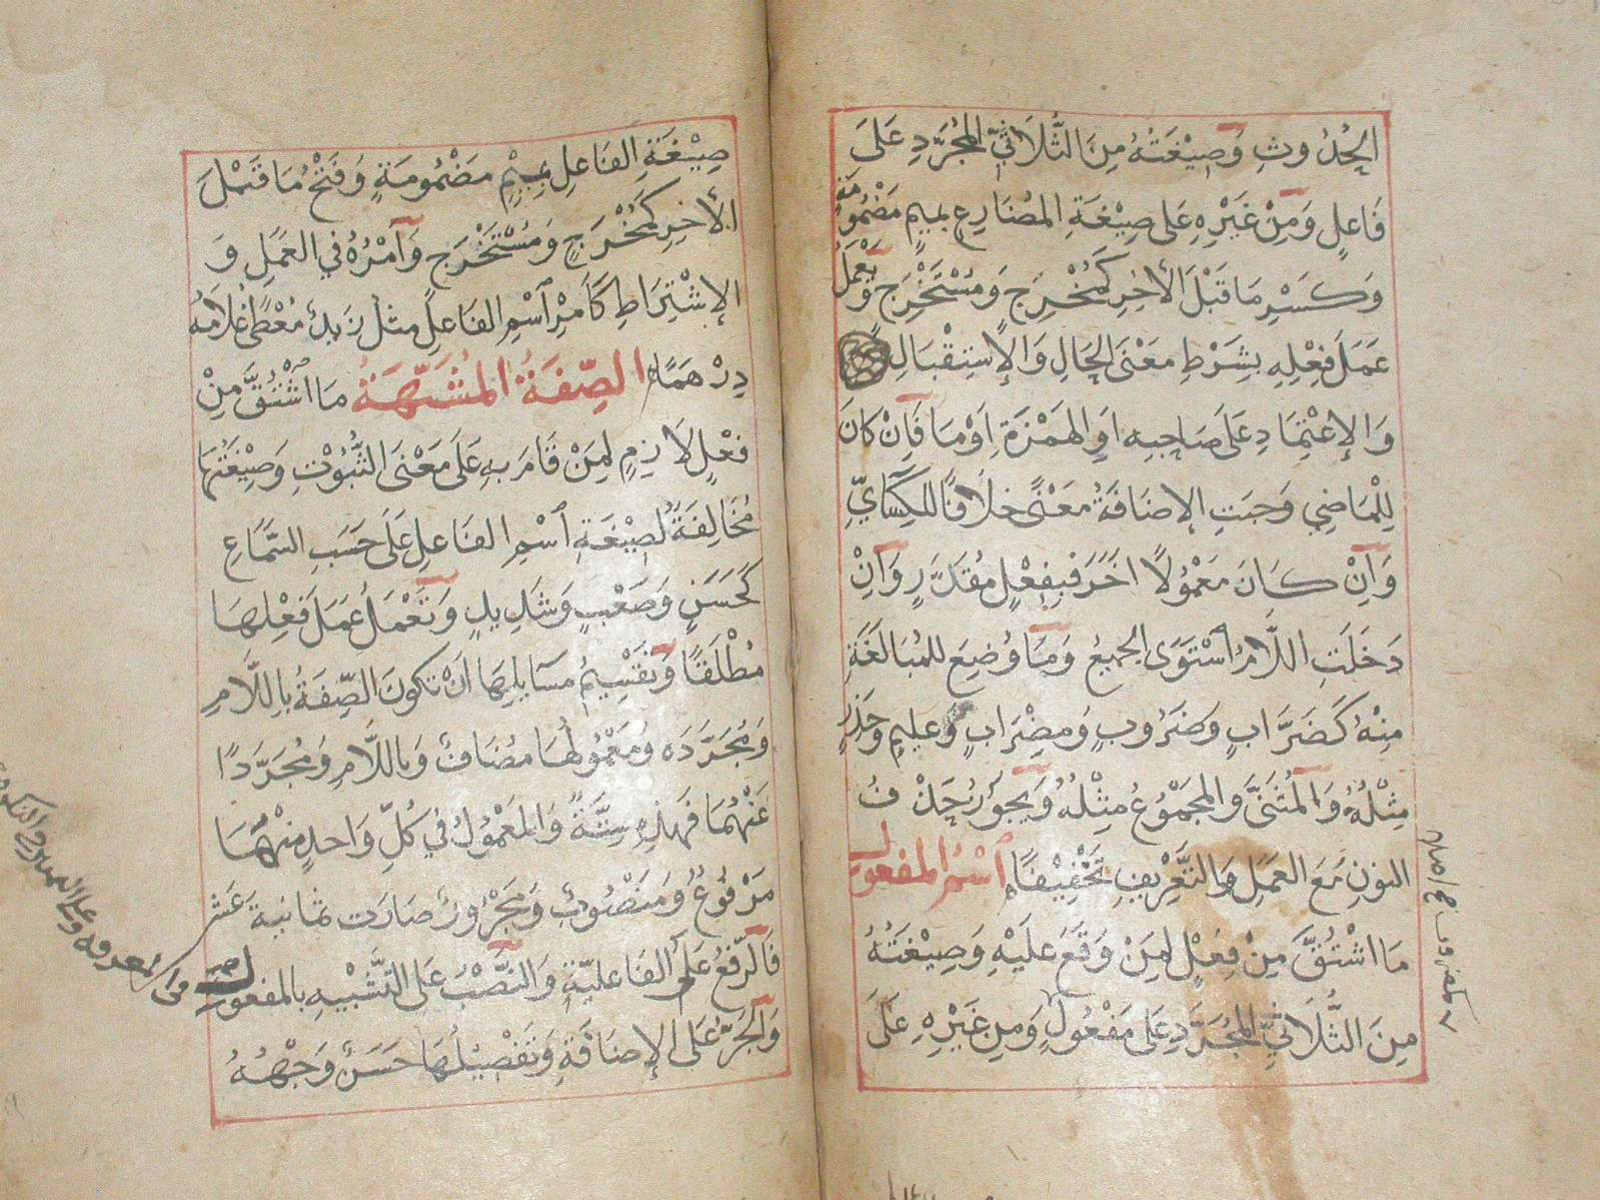 الحُدُوثِ وَصِيْغَتُهُ مِنَ الثُّلَاثِيّ المُجَرَّدِ عَلَى
فَاعِلٍ وَمِنْ غَيْرِهِ عَلى صِيْغَةِ المُضَارِعِ بِمِيمٍ مَضْمُومَةٍ
وَكَسْرِ مَا قَبْلَ الأخِرِ كَمُخْرِجٍ وَمُسْتَخْرِجٍ وَيَعْمَلُ
عَمَلَ فِعْلِهِ بِشَرْطِ مَعْنَى الحَالِ وَالإِسْتِقْبَالِ
وَالإِعْتِمَادِ عَلَى صَاحِبِهِ اَوِ الهَمْزَةِ اَوْ مَا فَاِنْ كَانَ
لِلْمَاضِي وَجَبَتِ الإِضَافَةُ مَعْنًى خِلَافًا لِلْكِسَائِيِّ
وَاِنْ كَانَ مَعْمُولًا اخَرَ فَبِفِعْلٍ مُقَدَّرٍ وَاِنْ
دَخَلَتِ اللَّامُ اسْتَوَى الجَمِيعُ وَمَا وُضِعَ لِلمُبَالَغَةِ
مِنْهُ كَضَرَّابٍ وَضَرُوبٍ وَمِضْرَابٍ وَعَلِيمٍ وَحَذِرٍ
مِثْلُهُ وَالمُثَنَّى وَالمَجْمُوعُ مِثْلُهُ وَيَجُوزُ حَذْفُ
النونِ مَعَ العَمَلِ وَالتَّعْرِيفِ تَخْفِيْفًا اسْمُ المفعول
مَا اشْتُقَّ مِنْ فِعْلٍ لِمَنْ وَقَعَ عَلَيْهِ وَصِيْغَتُهُ
مِنَ الثُّلَاثِيِّ المُجَرَّدِ عَلَى مَفْعُولٍ وَمِن غَيْرِهِ عَلَى
صِيْغَةِ الفَاعِلِ بِمِيْمٍ مَضْمُومَةٍ وَفَتْحِ مَا قَبْلَ
الأخِرِ كَمُخْرَجٍ وَمُسْتَخْرَجٍ وَاَمْرُهُ فِي العَمَلِ وَ
الإِشْتِرَاطِ كَاَمْرِ اسْمِ الفَاعِلِ مثل زيدٌ مُعْطًى غُلَامُهُ
دِرْهَمًا الصِّفَةُ المُشَبَّهَةُ مَا اشْتُقَّ مِنْ
فِعْلٍ لَازِمٍ لِمَنْ قَامَ بِهِ عَلَى مَعْنَى الثُّبُوْتِ وَصِيْغَتُهَا
مُخَالِفَةٌ لِصِيْغَةِ اسْمِ الفَاعِلِ عَلَى حَسَبِ السَّمَاعِ
كَحَسَنٍ وَصَعْبٍ وَشَدِيدٍ وَتَعْمَلُ عَمَلَ فِعْلِهَا
مُطْلَقًا وَتَقْسِيْمُ مَسَائِلِهَا اَنْ تَكُونَ الصِّفَةُ بِاللَّامِ
وَمُجَرَّدَه وَمَعْمُولُهَا مُضَافٌ وَبِاللَّامِ وَمُجَرَّدًا
عَنْهُمَا فَهذِهِ سِتَّةٌ وَالمَعْمُولُ فِي كُلِّ وَاحِدٍ مِنْهَا
مَرْفُوعٌ وَمَنْصُوبٌ وَمَجْرُورٌ صَارَت ثَمَانِيَةَ عَشَرَ
فَالرَّفْعُ عَلَى الفَاعِليَّةِ وَالنَّصْبُ عَلَى التَّشْبِيْهِ بالمفعول
وَالجَرُّ عَلَى الإِضَافَةِ وَتَفْصِيْلُهَا حَسَنٌ وَجْهُهُ
فى المعرفه وعلى التمييز فى النكره